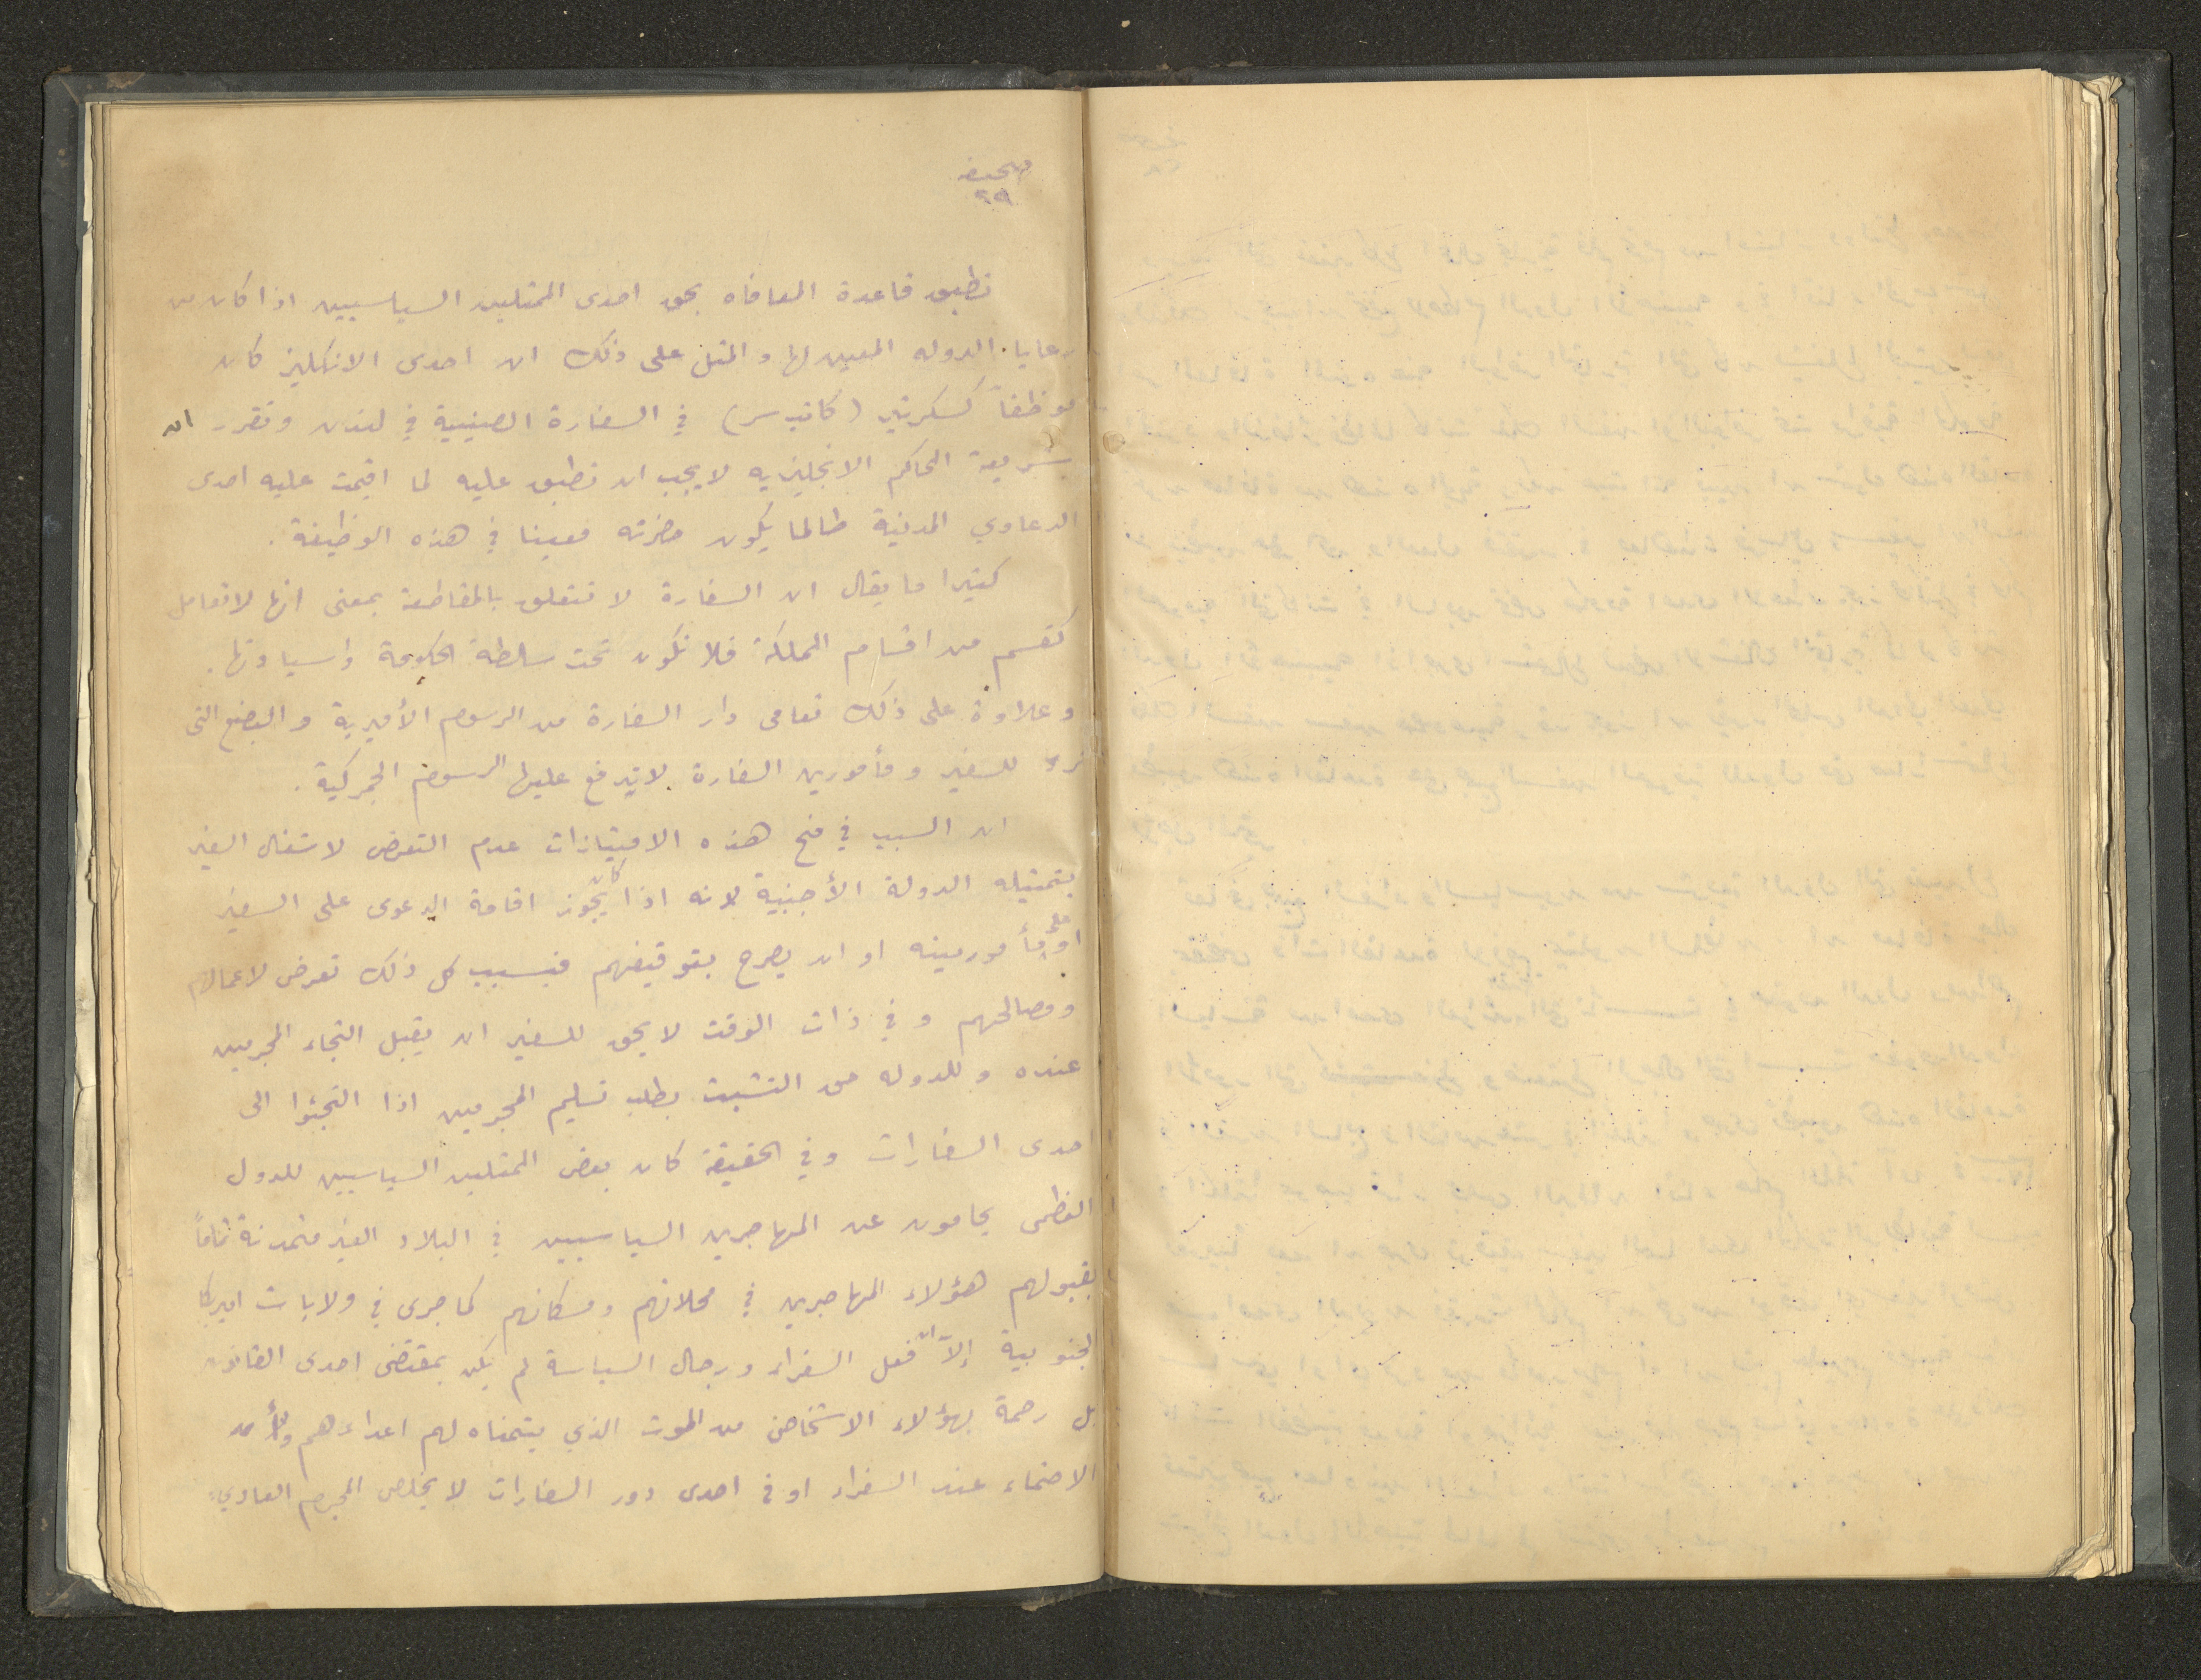 صحيفه
٢٩
تطبق قاعدة المعافاه بحق احدى الممثلين السياسيين اذا كان من
رعايا الدوله المعين لها والمثل على ذلك ان احدى الانكليز كان
موظفاً كسكرتير (كاتب سر) في السفارة الصينية في لندن وتقرر ان
شريعة المحاكم الانجليزيه لا يجب ان تطبق عليه لما اقيمت عليه احدى
الدعاوي المدنية طالما يكون حضرته معينا في هذه الوظيفة .
كثيرا ما يقال ان السفارة لا تتعلق بالمقاطعة بمعنى انها لا تعامل
كقسم من اقسام المملكة فلا تكون تحت سلطة الحكومة واسيادتها .
وعلاوة على ذلك تعافى دار السفارة من الرسوم الأميرية والبضع التى
ترد للسفير ومأمورين السفارة لا يدفع عليها الرسوم الجمركية .
ان السبب في منح هذه الامتيازات عدم التعرض لاشغال السفير
بتمثيله الدولة الأجنبية لانه اذا كان يجوز اقامة الدعوى على السفير
او على مأمورينه او ان يصرح بتوقيفهم فبسبب كل ذلك تعرض لاعمالهم
ومصالحهم وفي ذات الوقت لا يحق للسفير ان يقبل التجاء المجرمين
عنده وللدوله حق التشبث بطلب تسليم المجرمين اذا التجئوا الى
احدى السفارات وفي الحقيقة كان بعض الممثلين السياسيين للدول
العظمى يحامون عن المهاجرين السياسيين في البلاد الغير متمدنة تماماً
بقبولهم هؤلاء المهاجرين في محلاتهم ومسكانهم كما جرى في ولايات اميركا
الجنوبية إلاّ ان فعل السفراء ورجال السياسة لم يكن بمقتضى احدى القانون
بل رحمة بهؤلاء الاشخاص من الموت الذي يتمناه لهم اعداءهم
الاحتماء عند السفراء او في احدى دور السفارات لا يخلص المجرم العادي